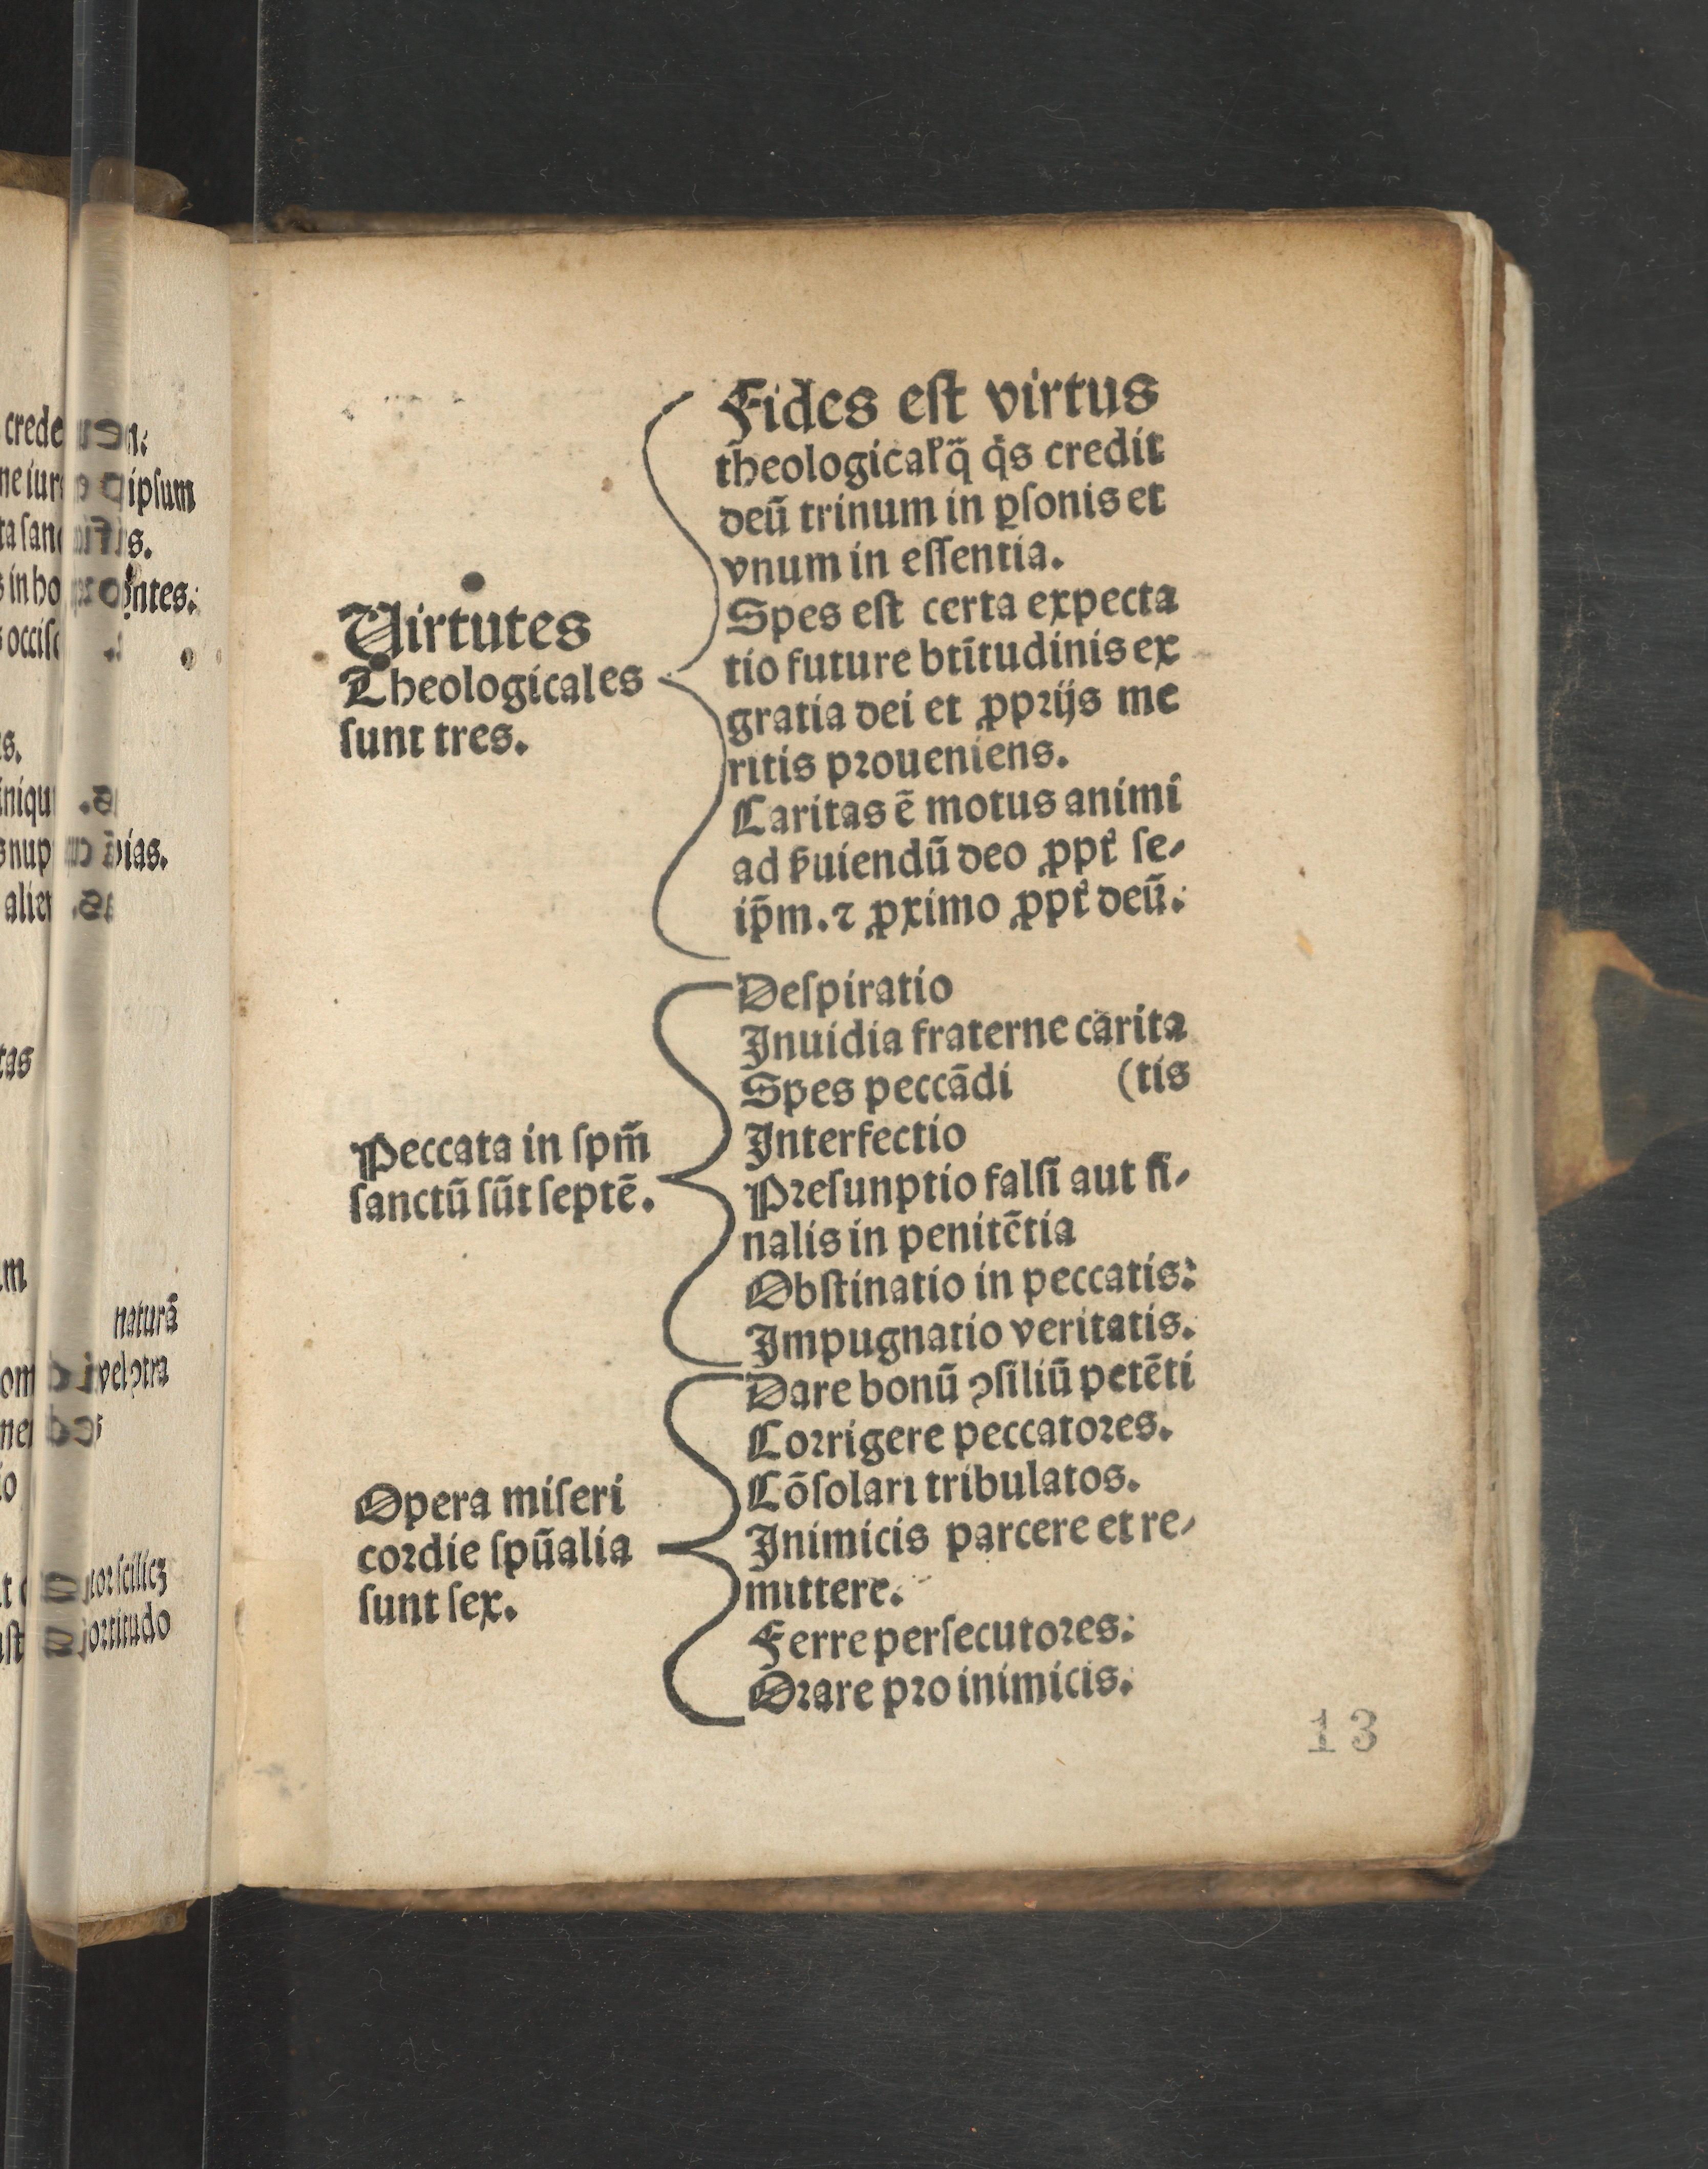 Virtutes
Theologicales
sunt tres.
Fides est virtus
theological' q̄ q̇s credit
deū trinum in ꝑsonis et
vnum in essentia.
Spes est certa expecta
tio future btītudinis ex
gratia dei et ꝓprijs me
ritis proueniens.
Caritas ē motus animi
ad ẜuiendū deo ꝓpt̉ se⸗
ip̄m. ⁊ ꝓximo ꝓpt̉ deū:
Peccata in spm̄
sanctū sūt septē.
Despiratio
Inuidia fraterne carita
Spes peccādi (tis
Interfectio
Presunptio falsi aut fi⸗
nalis in penitētia
Obstinatio in peccatis:
Impugnatio veritatis.
Opera miseri
cordie spūalia
sunt sex.
Dare bonū ꝯsiliū petēti
Corrigere peccatores.
Cōsolari tribulatos.
Inimicis parcere et re⸗
mittere.
Ferre persecutores:
Orare pro inimicis.
13